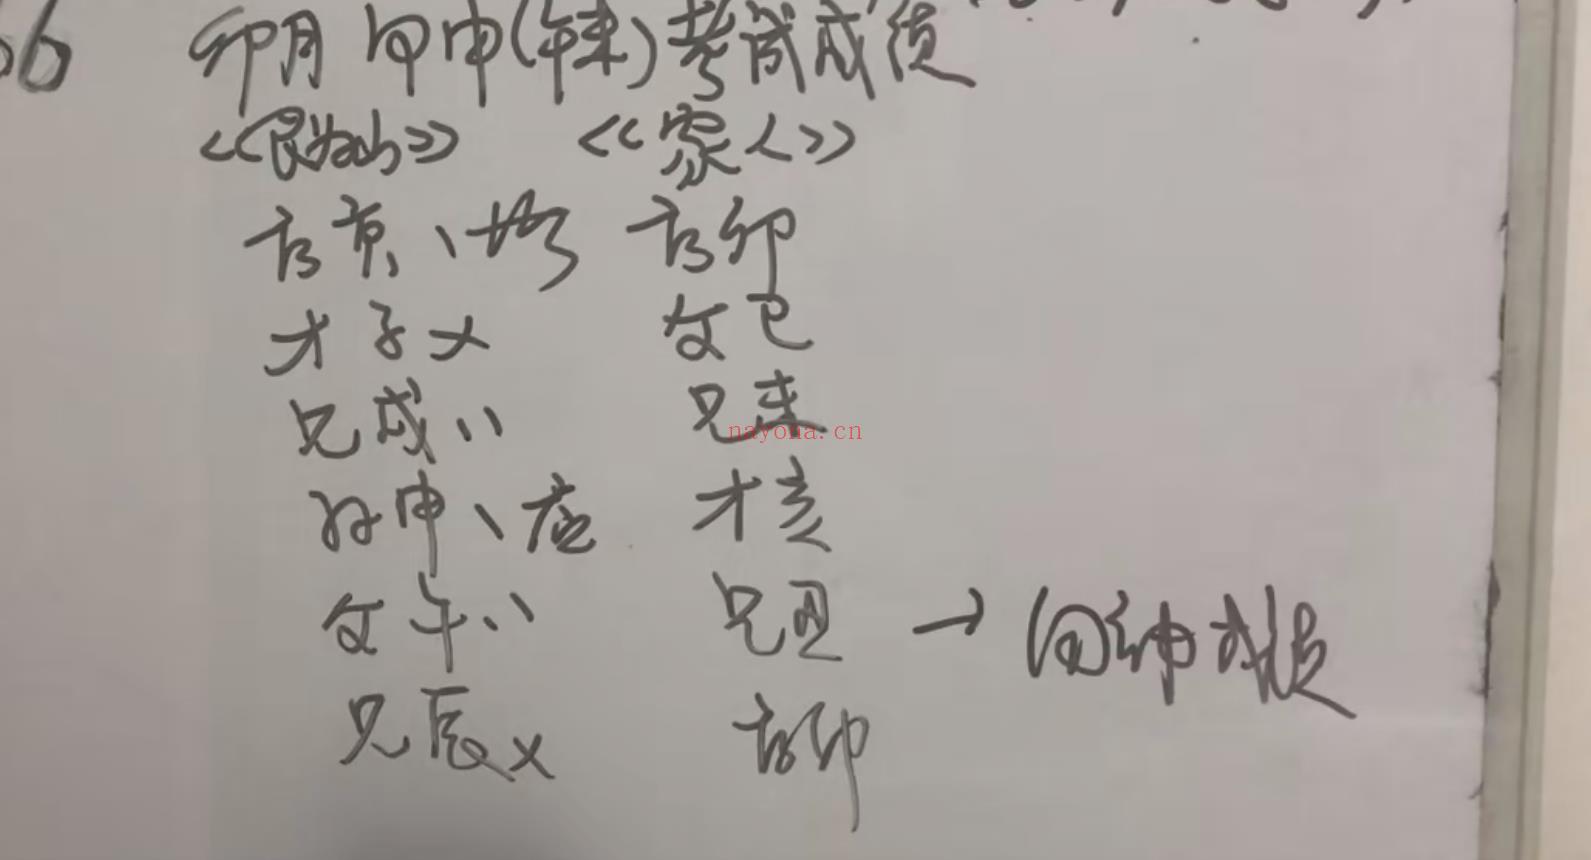 56 卯月甲申(午未)考试成绩
<<艮为山>> <<家人>>
官寅、世 官卯
才子x 父巳
兄戌、、 兄未
nayona.cn
孙申、应 才亥
父午、、 兄丑 →
兄辰x 官卯